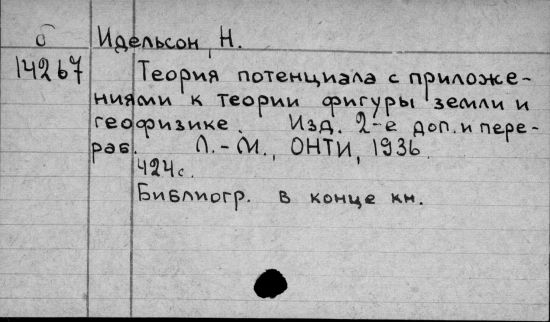 б Идельсон, Н.
14267 Теория потенциала с приложе-
ниями к теории фигуры земли и
геофизике. Изд. 2-е доп. и пере-
раб. Л.-М., ОНТИ, 1936.
424с.
Библиогр. в конце кн.